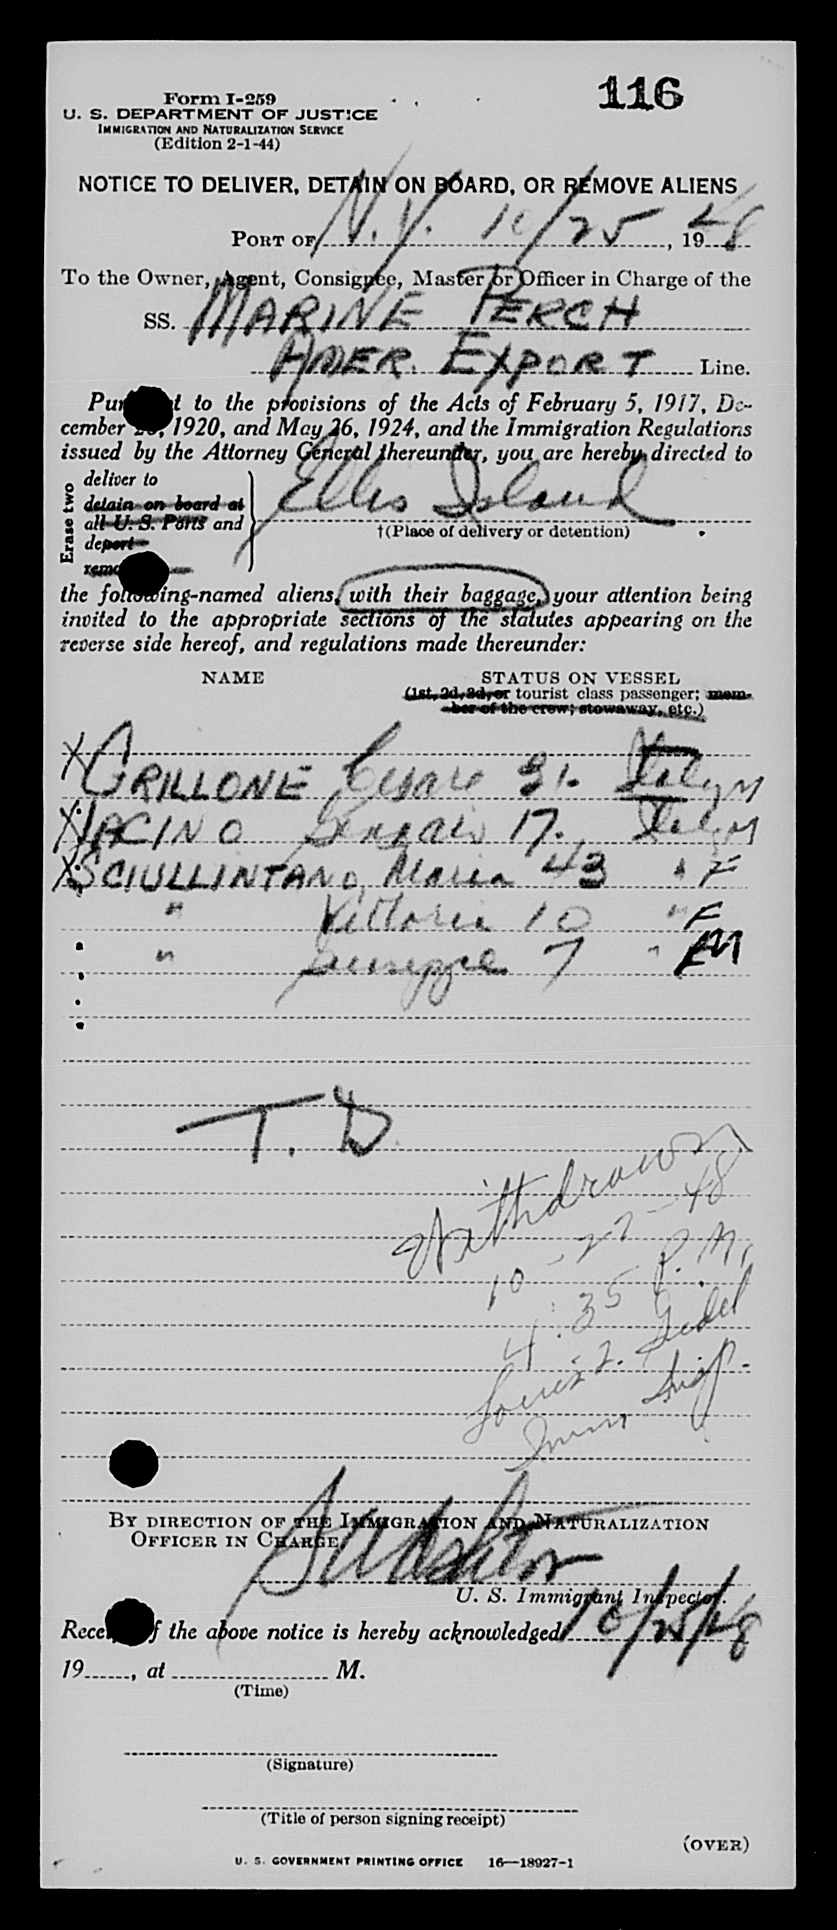 116
Form I-259
U. S. DEPARTMENT OF JUSTICE
IMMIGRATION AND NATURALIZATION SERVICE
(Edition 2-1-44)
NOTICE TO DELIVER, DETAIN ON BOARD, OR REMOVE ALIENS
PORT OF N.Y. 10/25, 1948
To the Owner, Agent, Consignee, Master or Officer in Charge of the
SS. MARINE PERCH
AMER. EXPORT Line.
Pursuant to the provisions of the Acts of February 5, 1917, De-
cember 26, 1920, and May 26, 1924, and the Immigration Regulations
issued by the Attorney General thereunder, you are hereby directed to
Erase two
deliver to
detain on board at
all U. S. Ports and
deport
Ellis Island
†(Place of delivery or detention)
the following-named aliens, with their baggage, your attention being
invited to the appropriate sections of the statutes appearing on the
reverse side hereof, and regulations made thereunder:
NAME STATUS ON VESSEL
(1st, 2d, 3d, or tourist class passenger; mem-
ber of the crew; stowaway, etc.)
X GRILLONE Cesare 31. Italy M
X IACINO Gennaro 17. Italy M
X SCIULLINTANO, Maria 43 " F
" Vittoria 10 " F
" Giuseppe 7 " M
T. D
Withdrawn
10-27-48
4:35 P.M.
Louis I.
Imm. Insp.
BY DIRECTION OF THE IMMIGRATION AND NATURALIZATION
OFFICER IN CHARGE,
U. S. Immigrant Inspector.
Receipt of the above notice is hereby acknowledged 10/25/48
19......, at .................... M.
(Time)
(Signature)
(Title of person signing receipt)
(OVER)
U. S. GOVERNMENT PRINTING OFFICE 16—18927-1